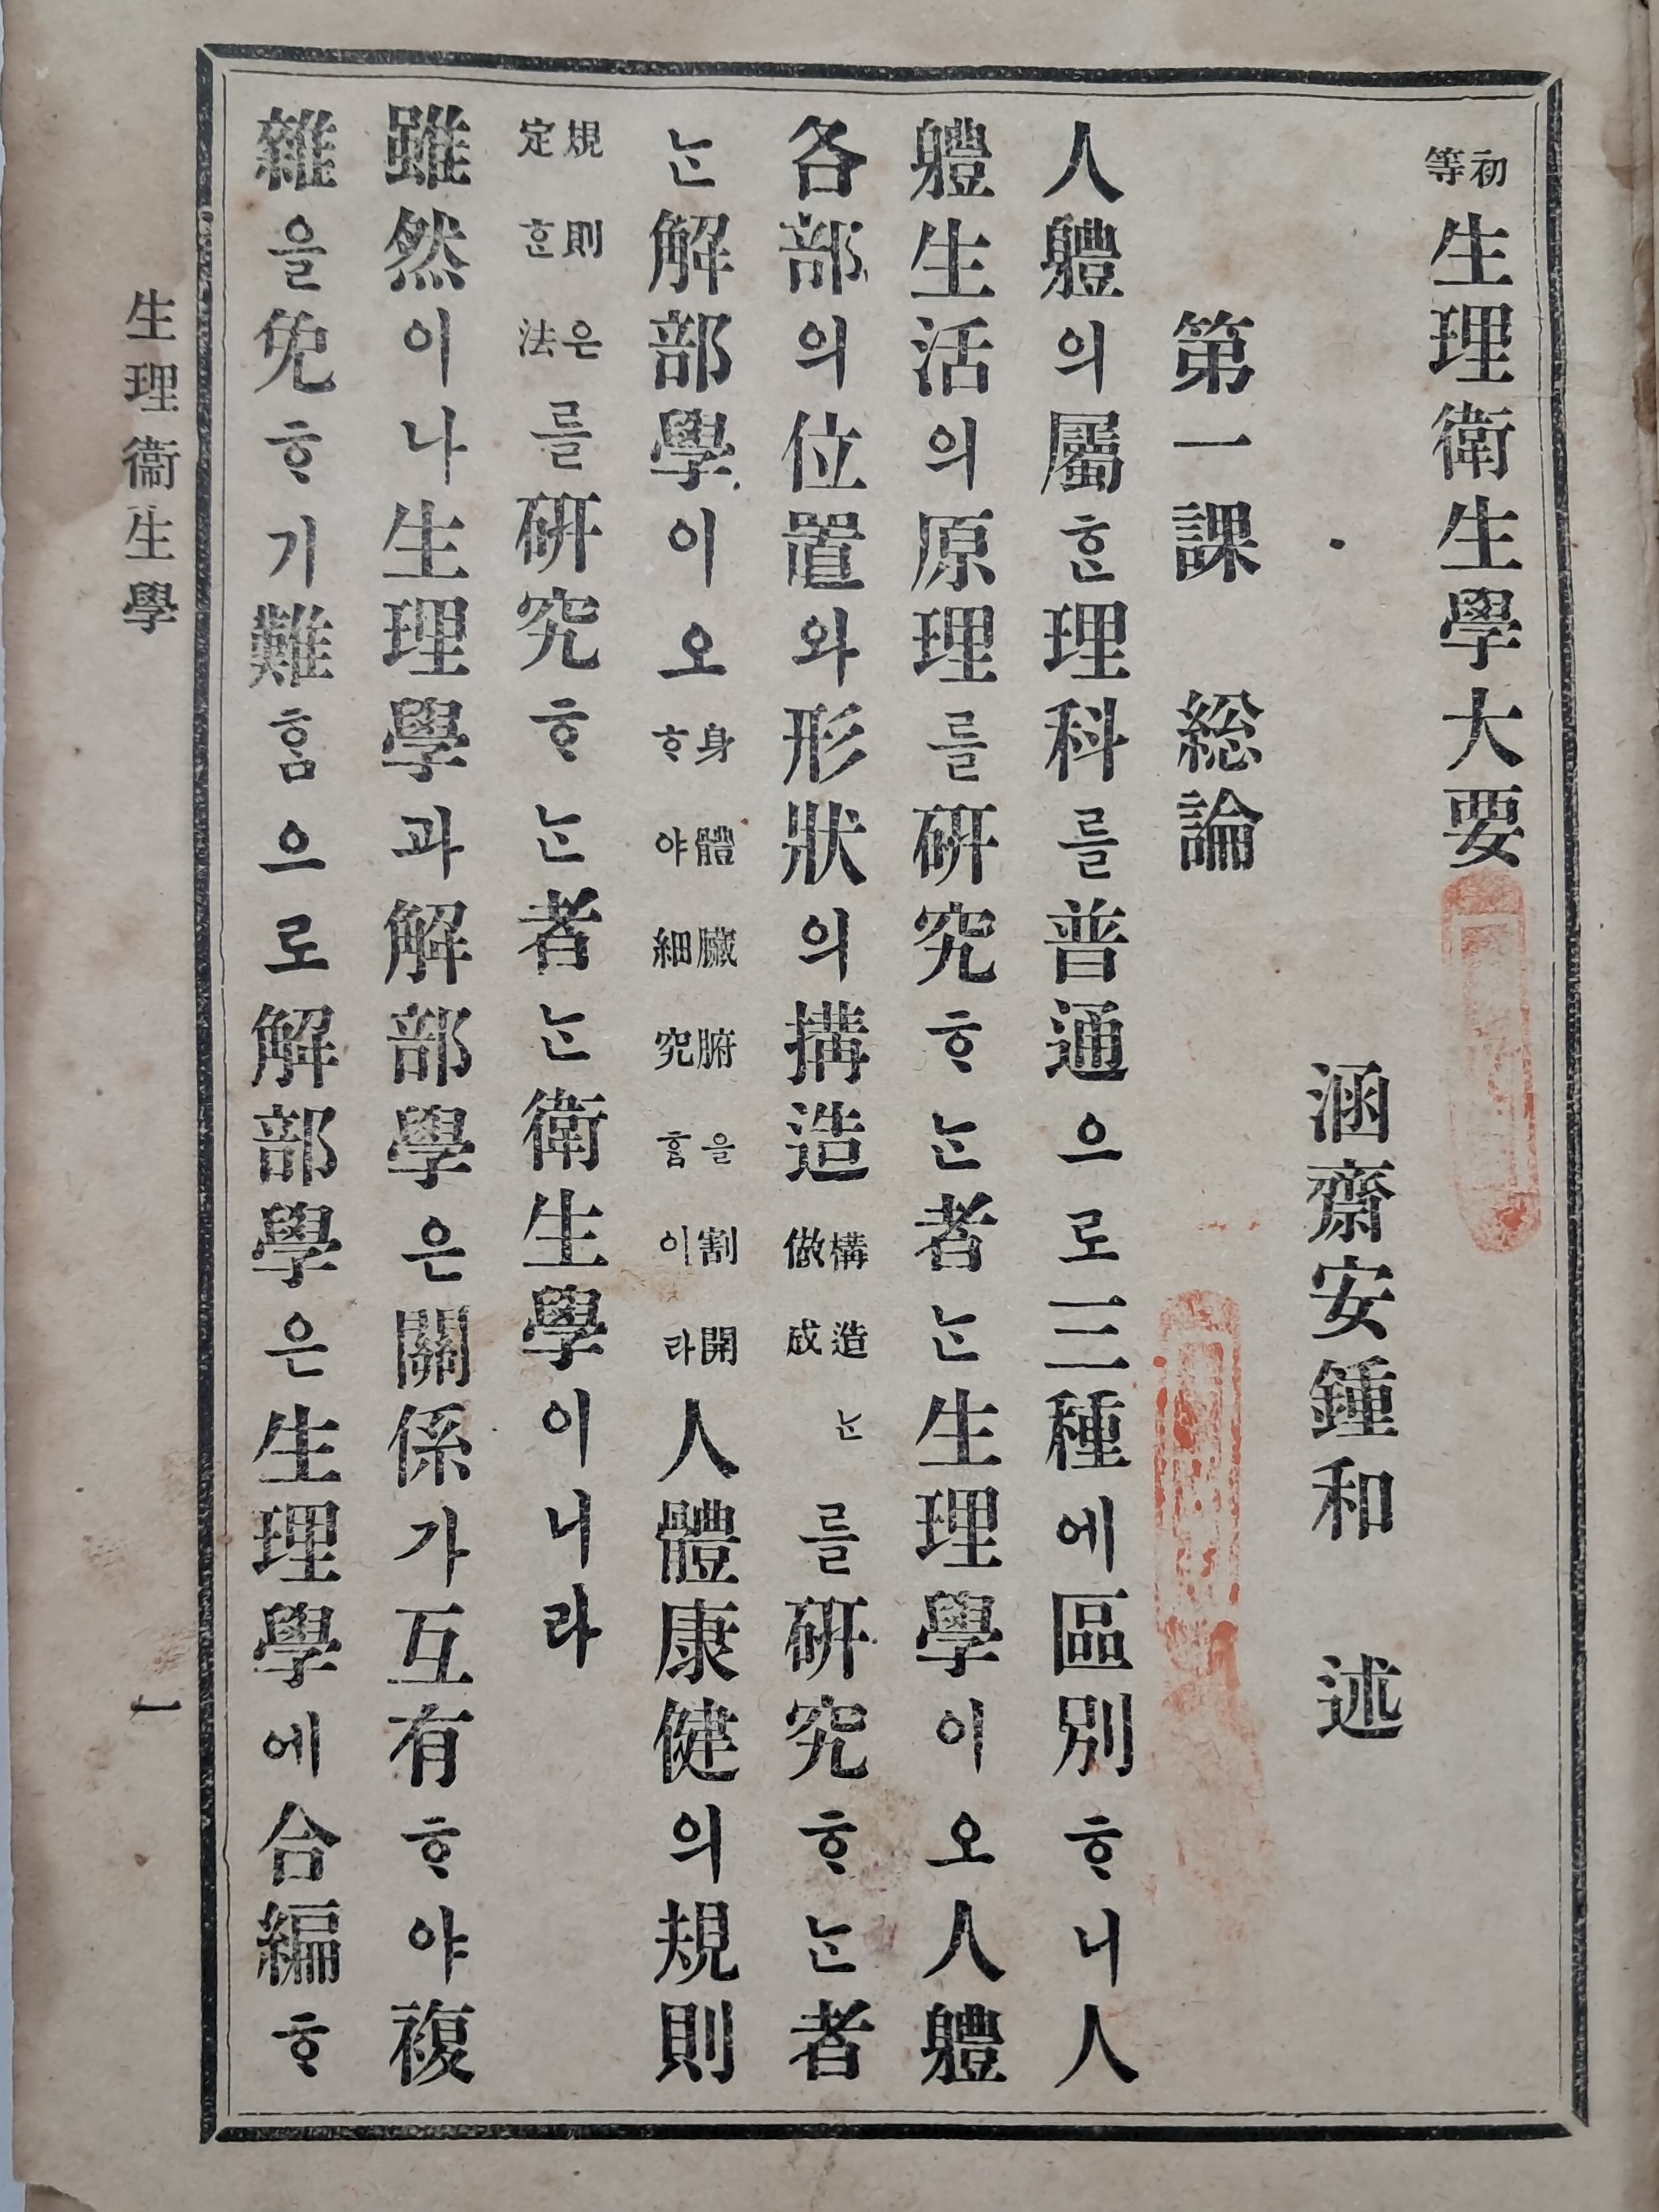 初等生理衛生學大要
涵齋安鍾和 述
第一課 総論
人軆의屬ᄒᆞᆫ理科를普通으로三種에區別ᄒᆞ니人
軆生活의原理를硏究ᄒᆞᄂᆞᆫ者ᄂᆞᆫ生理學이오人軆
各部의位置와形狀의搆造構造ᄂᆞᆫ做成를硏究ᄒᆞᄂᆞᆫ者
ᄂᆞᆫ解部學이오身體臟腑을割開ᄒᆞ야細究홈이라人體康健의規則
規則은定ᄒᆞᆫ法를硏究ᄒᆞᄂᆞᆫ者ᄂᆞᆫ衛生學이니라
雖然이나生理學과解部學은關係가互有ᄒᆞ야複
雜을免ᄒᆞ기難ᄒᆞᆷ으로解部學은生理學에合編ᄒᆞ
生理衞生學
一